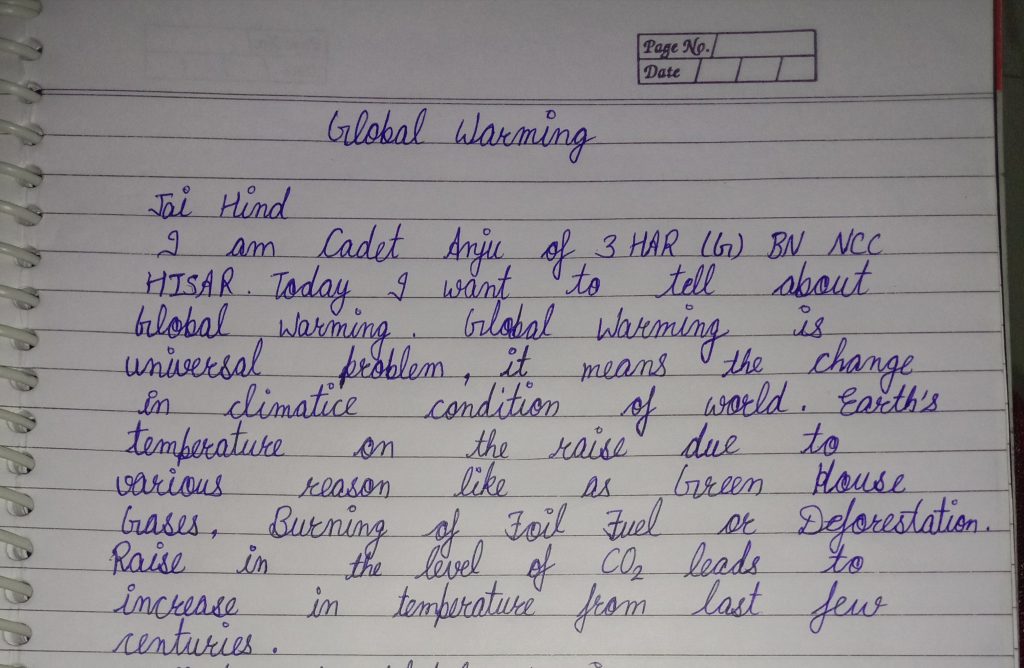 Page No.
Date
Global Warming
Jai Hind
I am Cadet Anju of 3 HAR (G) BN NCC
HISAR. Today I want to tell about
Global Warming. Global Warming is
universal problem, it means the change
in climatice condition of world. Earth's
temperature on the raise due to
various reason like as Green House
Gases, Burning of Foil Fuel or Deforestation.
Raise in the level of CO₂ leads to
increase in temperature from last few
centuries.